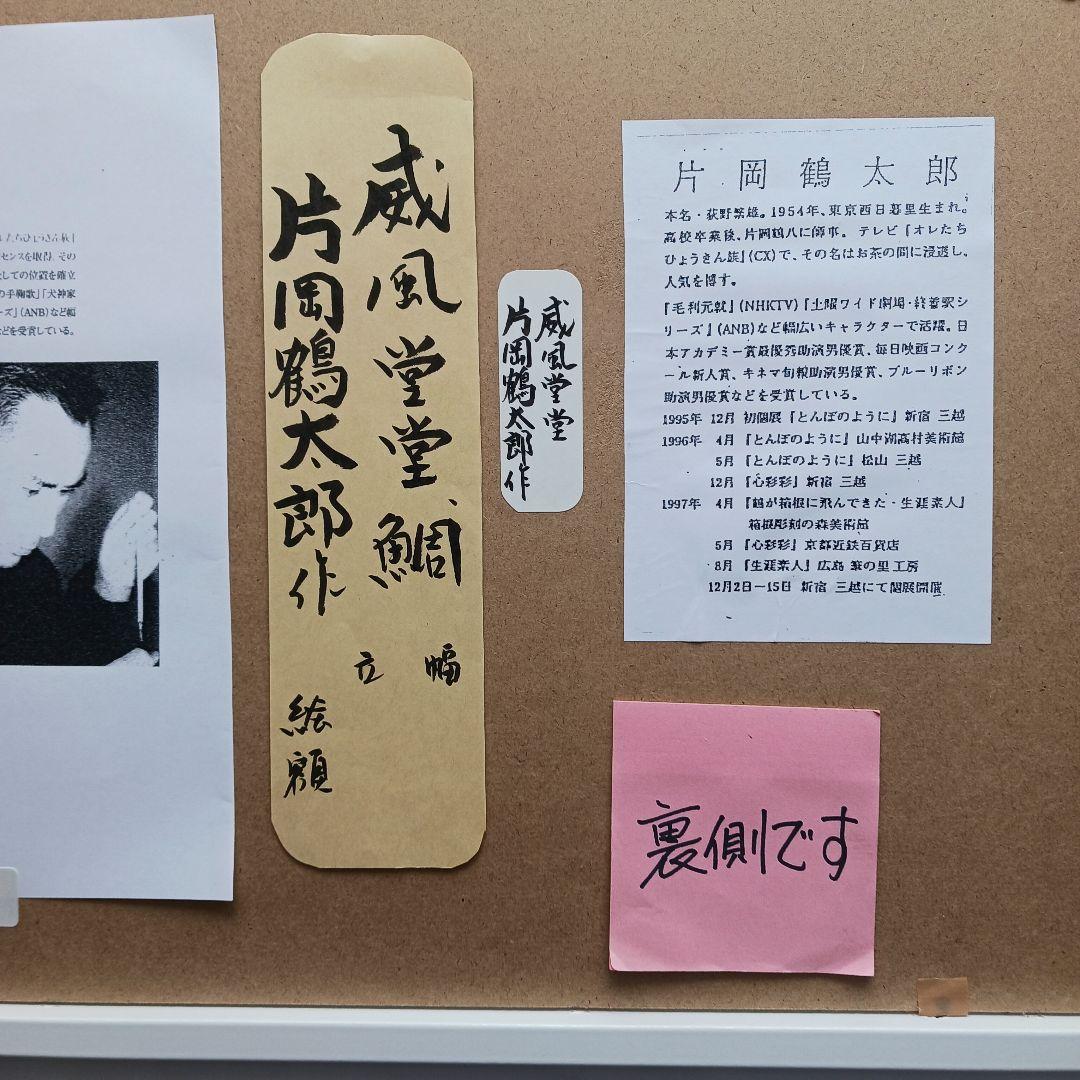 センスを取得、その
しての位置を確立
の手鞠歌」「犬神家
ーズ」(ANB)など幅
などを受賞している。
威風堂堂、鯛
片岡鶴太郎作
立幅
絵額
威風堂堂
片岡鶴太郎作
片岡鶴太郎
本名・荻野繁雄。1954年、東京西日暮里生まれ。
高校卒業後、片岡鶴八に師事。テレビ「オレたち
ひょうきん族」(CX)で、その名はお茶の間に浸透し、
人気を博す。
「毛利元就」(NHKTV)「土曜ワイド劇場・終着駅シ
リーズ」(ANB)など幅広いキャラクターで活躍。日
本アカデミー賞最優秀助演男優賞、毎日映画コンク
ール新人賞、キネマ旬報助演男優賞、ブルーリボン
助演男優賞などを受賞している。
1995年 12月 初個展「とんぼのように」新宿 三越
1996年 4月 「とんぼのように」山中湖高村美術館
5月 「とんぼのように」松山 三越
12月 「心彩彩」新宿 三越
1997年 4月 「鶴が箱根に飛んできた・生涯素人」
箱根彫刻の森美術館
5月 「心彩彩」京都近鉄百貨店
8月 「生涯素人」広島 筆の里工房
12月2日〜15日 新宿 三越にて個展開催
裏側です